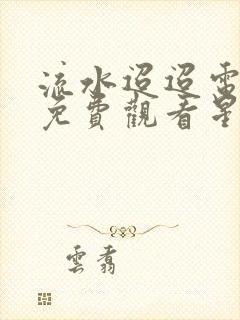 流水迢迢電
免費觀看星
雲翥